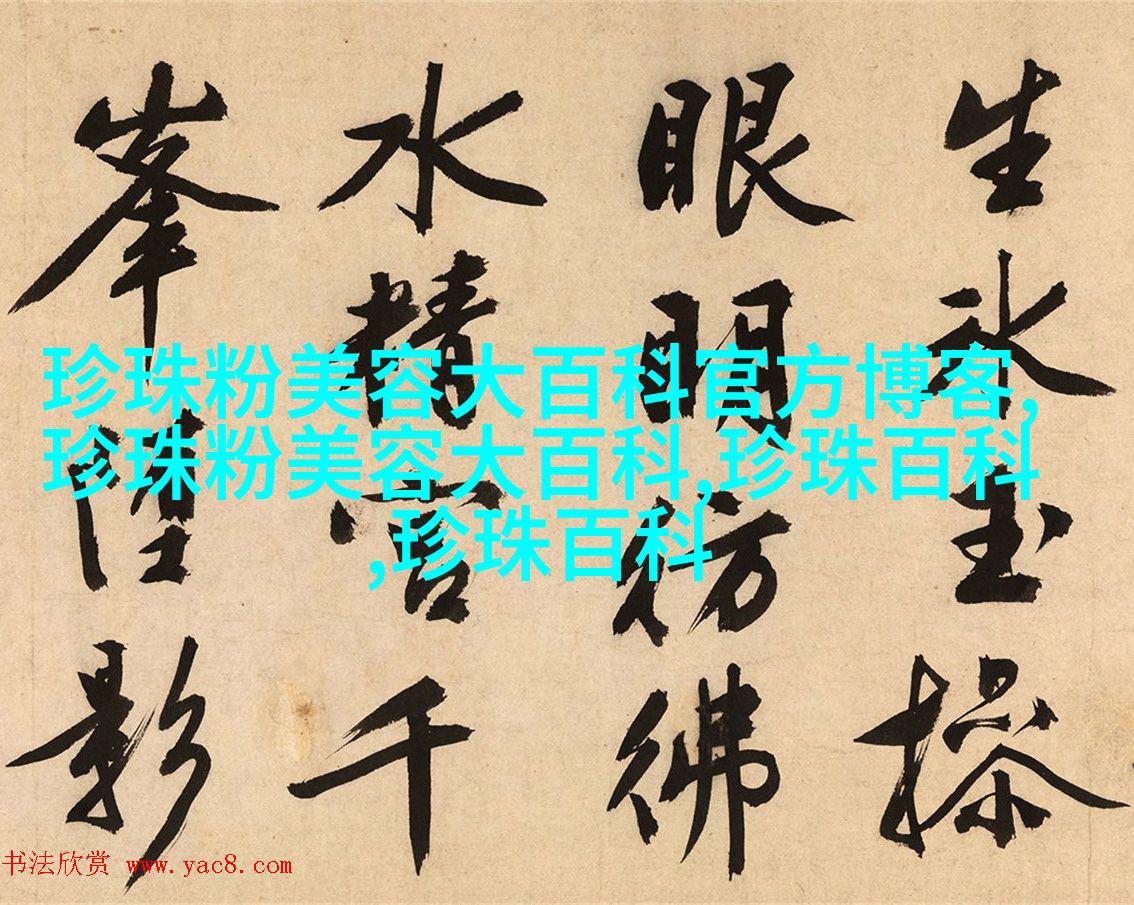 生氷玉操
眼明彷彿
水精宫千
峯影
珍珠粉美容大百科官方博客,
珍珠粉美容大百科,珍珠百科
,珍珠百科
书法欣赏 www.yac8.com